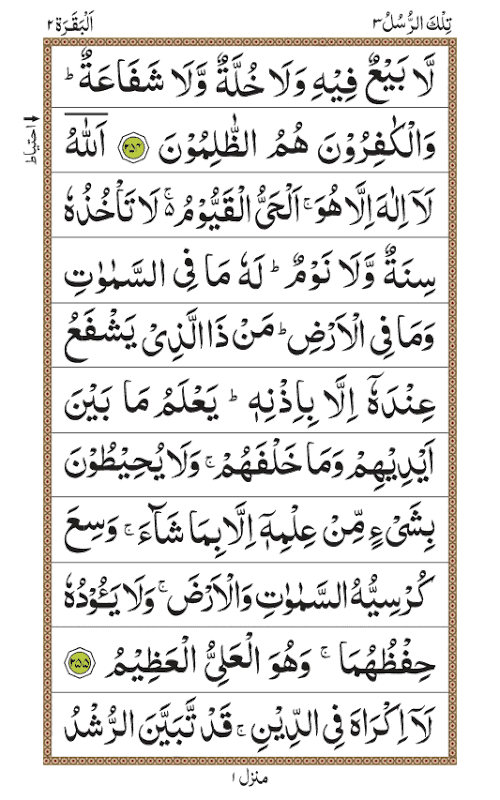 تِلْكَ الرُّسُلُ ٣
اَلْبَقَرَة ٢
لَّا بَيْعٌ فِيْهِ وَلَا خُلَّةٌ وَّلَا شَفَاعَةٌ ؕ
وَالْكٰفِرُوْنَ هُمُ الظّٰلِمُوْنَ ﴿۲۵۴﴾ اَللّٰهُ
احتیاط
لَاۤ اِلٰهَ اِلَّا هُوَ ۚ اَلْحَیُّ الْقَيُّوْمُ ۬ۚ لَا تَاْخُذُهٗ
سِنَةٌ وَّلَا نَوْمٌ ؕ لَهٗ مَا فِی السَّمٰوٰتِ
وَمَا فِی الْاَرْضِ ؕ مَنْ ذَا الَّذِیْ يَشْفَعُ
عِنْدَهٗۤ اِلَّا بِاِذْنِهٖ ؕ يَعْلَمُ مَا بَيْنَ
اَيْدِيْهِمْ وَمَا خَلْفَهُمْ ۚ وَلَا يُحِيْطُوْنَ
بِشَیْءٍ مِّنْ عِلْمِهٖۤ اِلَّا بِمَا شَآءَ ۚ وَسِعَ
كُرْسِيُّهُ السَّمٰوٰتِ وَالْاَرْضَ ۚ وَلَا يَـُٔوْدُهٗ
حِفْظُهُمَا ۚ وَهُوَ الْعَلِیُّ الْعَظِيْمُ ﴿۲۵۵﴾
لَاۤ اِكْرَاهَ فِی الدِّيْنِ ۚ قَدْ تَّبَيَّنَ الرُّشْدُ
منزل ١